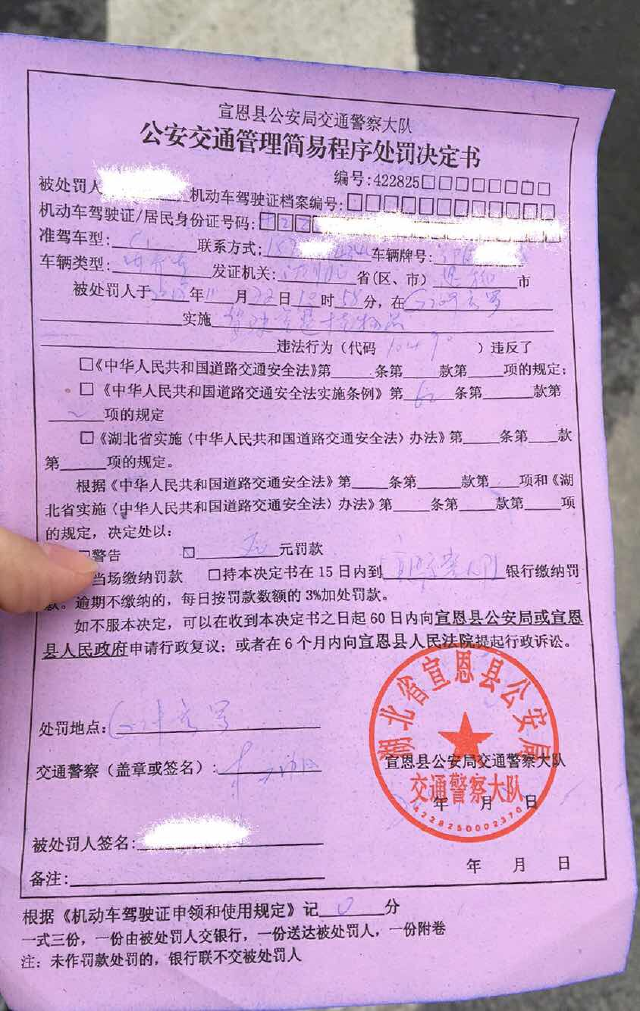 宣恩县公安局交通警察大队
公安交通管理简易程序处罚决定书
编号:422825□□□□□□□□
被处罚人 机动车驾驶证档案编号:□□□□□□□□□□□□
机动车驾驶证/居民身份证号码:
准驾车型: C1 联系方式: 车辆牌号:
车辆类型: 发证机关: 省(区、市) 市
被处罚人于 年11月22日 时58分,在
实施
违法行为(代码 )违反了
□《中华人民共和国道路交通安全法》第 条第 款第 项的规定;
□《中华人民共和国道路交通安全法实施条例》第 条第 款第
项的规定
□《湖北省实施〈中华人民共和国道路交通安全法〉办法》第 条第 款
第 项的规定。
根据《中华人民共和国道路交通安全法》第 条第 款第 项和《湖
北省实施〈中华人民共和国道路交通安全法〉办法》第 条第 款第 项
的规定,决定处以:
警告 元罚款
当场缴纳罚款 □持本决定书在15日内到 银行缴纳罚
款。逾期不缴纳的,每日按罚款数额的3%加处罚款。
如不服本决定,可以在收到本决定书之日起60日内向宣恩县公安局或宣恩
县人民政府申请行政复议;或者在6个月内向宣恩县人民法院提起行政诉讼。
处罚地点:
交通警察(盖章或签名):
湖北省宣恩县公安局
宣恩县公安局交通警察大队
交通警察大队
年 月 日
4228250002370
被处罚人签名:
年 月 日
备注:
根据《机动车驾驶证申领和使用规定》记 0 分
一式三份,一份由被处罚人交银行,一份送达被处罚人,一份附卷
注:未作罚款处罚的,银行联不交被处罚人